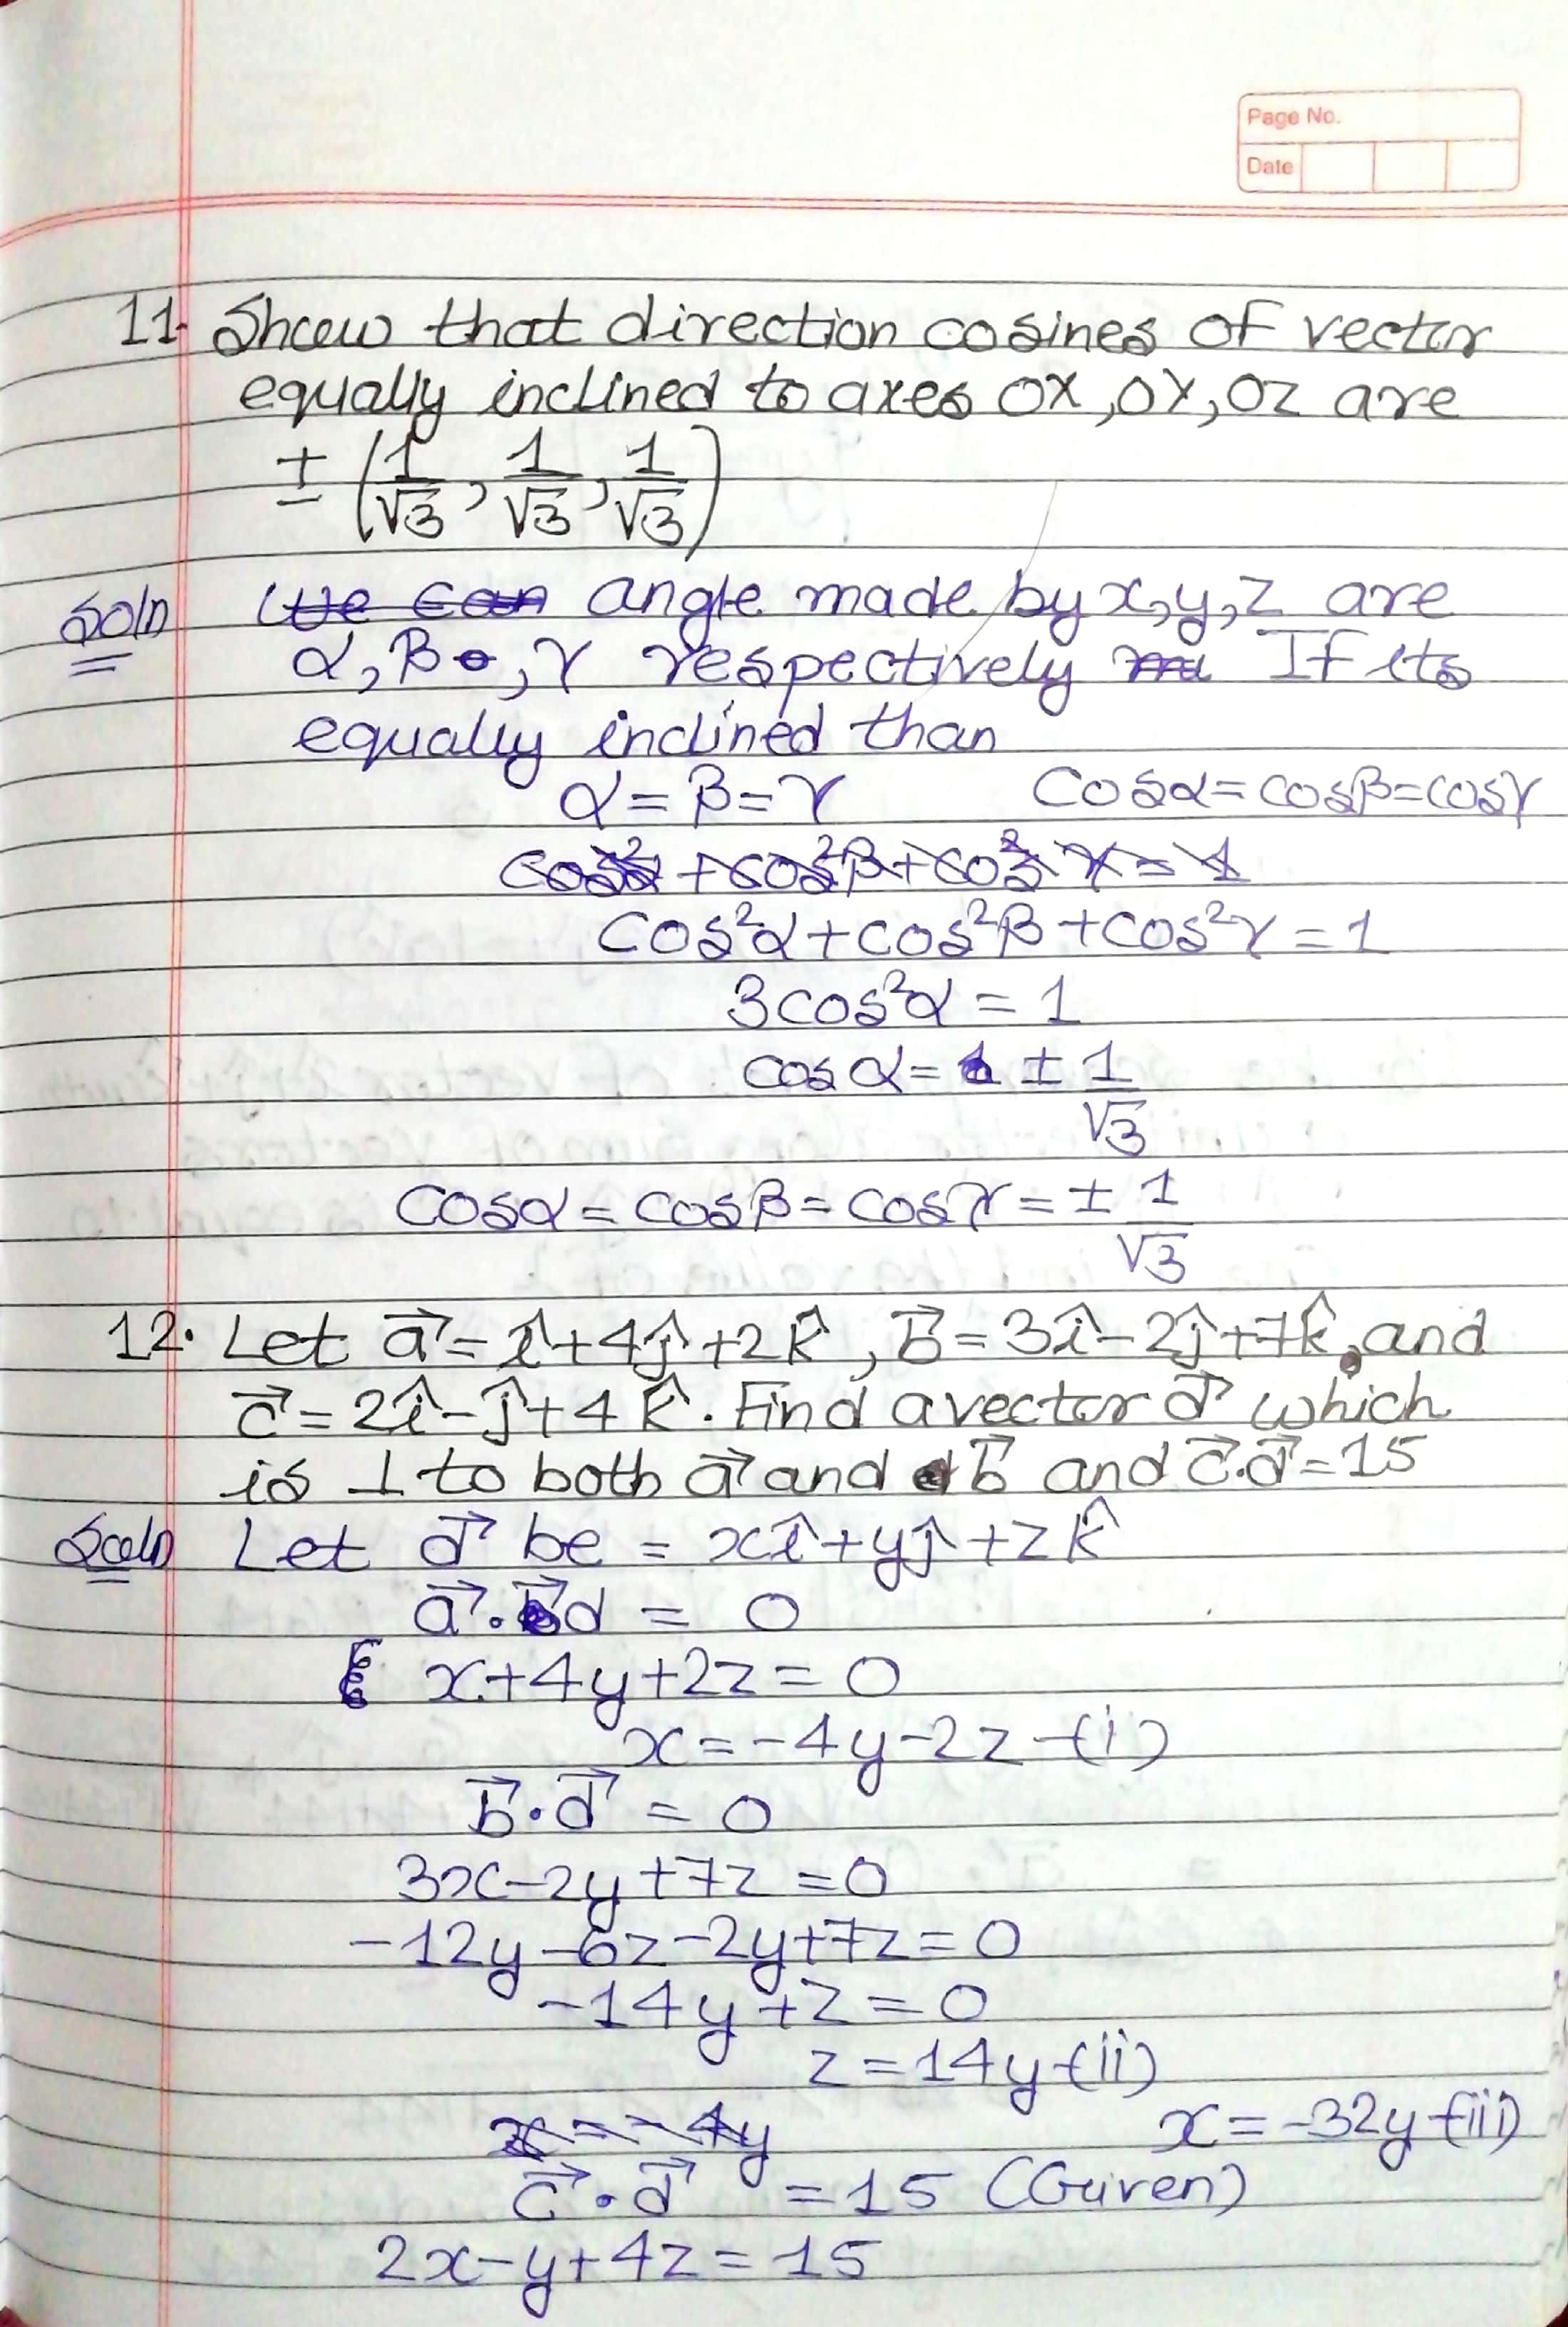 Page No.
Date
11. Show that direction cosines of vector
equally inclined to axes OX, OY, OZ are
± (1/√3, 1/√3, 1/√3)
Soln We can angle made by x, y, z are
α, β, γ respectively If its
equally inclined than
α = β = γ cosα = cosβ = cosγ
cos²α + cos²β + cos²γ = 1
cos²α + cos²β + cos²γ = 1
3cos²α = 1
cos α = ± 1/√3
cosα = cosβ = cosγ = ± 1/√3
12. Let a⃗ = î + 4ĵ + 2k̂, b⃗ = 3î - 2ĵ + 7k̂, and
c⃗ = 2î - ĵ + 4k̂. Find a vector d⃗ which
is ⊥ to both a⃗ and b⃗ and c⃗.d⃗ = 15
Soln Let d⃗ be = xî + yĵ + zk̂
a⃗.d = 0
x + 4y + 2z = 0
x = -4y - 2z -(i)
b⃗.d⃗ = 0
3x - 2y + 7z = 0
-12y - 6z - 2y + 7z = 0
-14y + z = 0
z = 14y -(ii)
x = -4y x = -32y -(iii)
c⃗.d⃗ = 15 (Given)
2x - y + 4z = 15